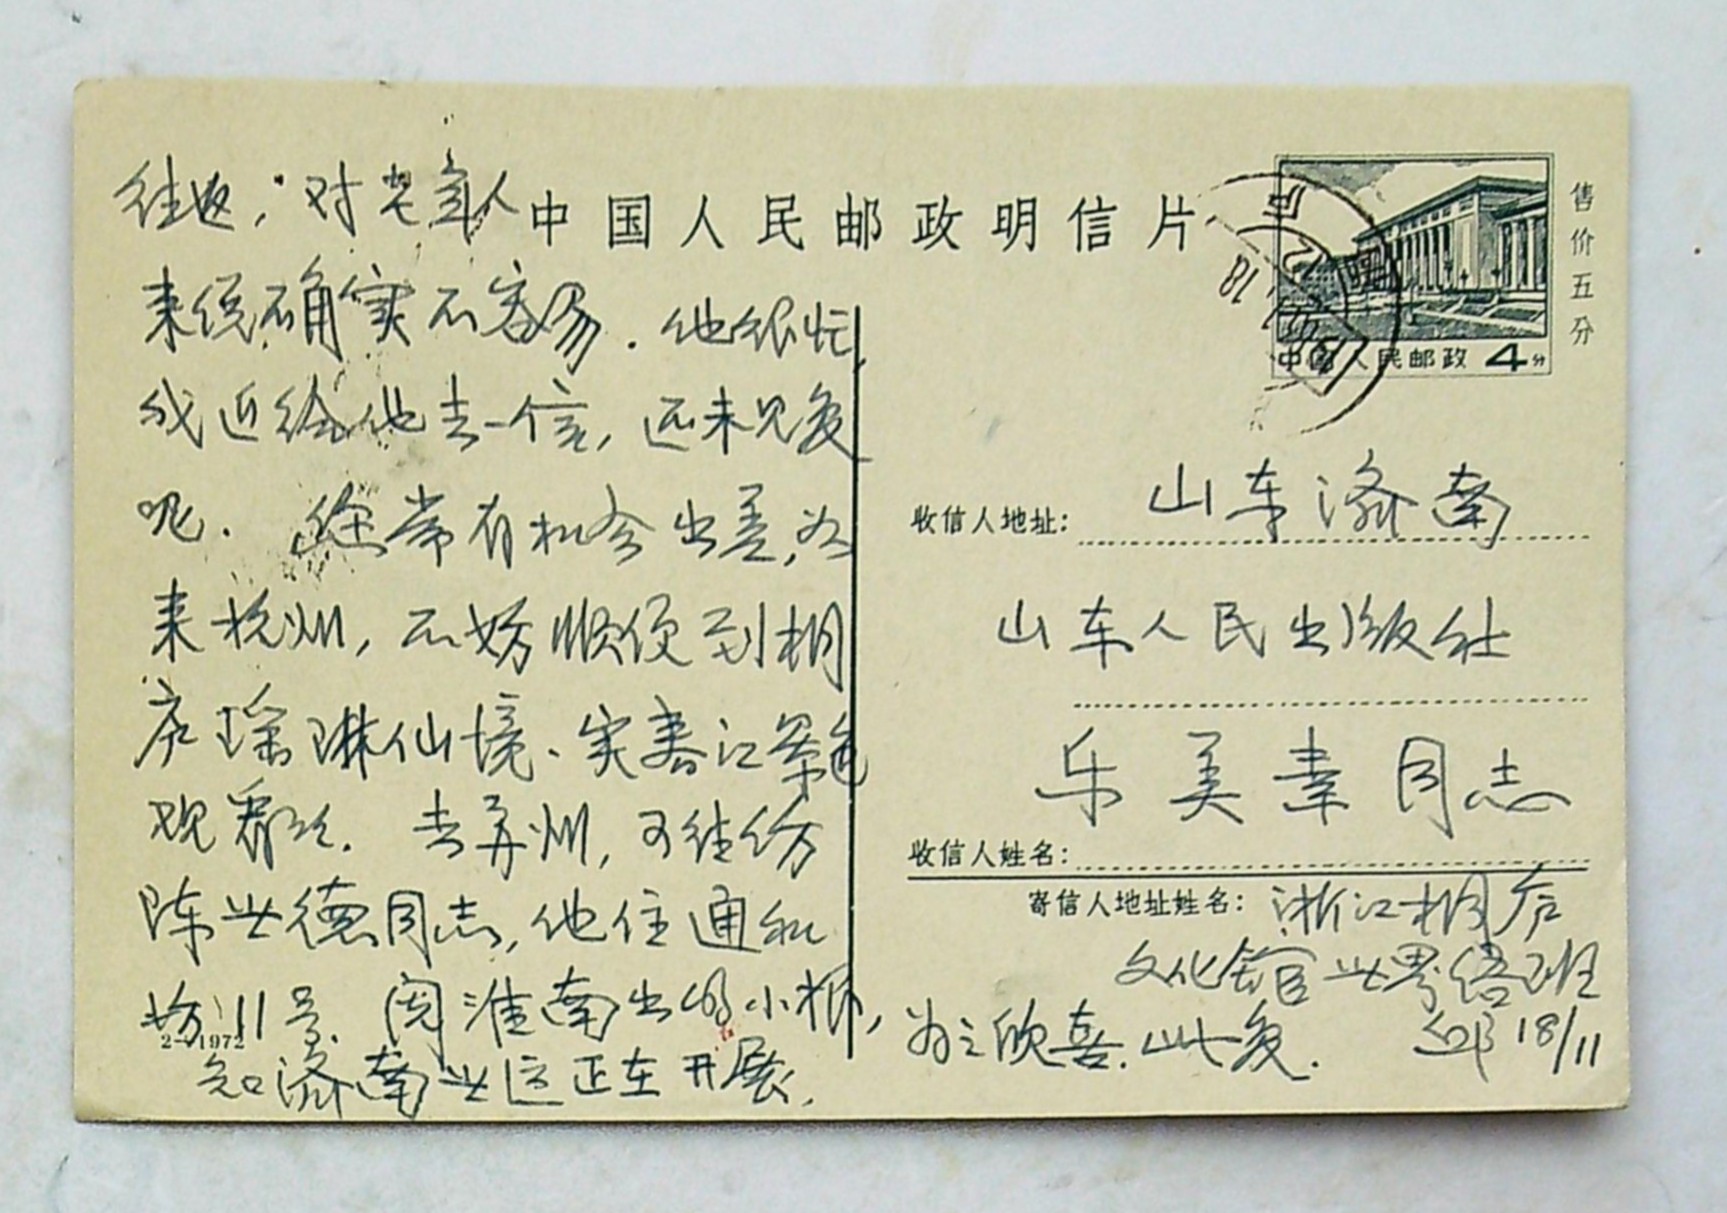 中国人民邮政明信片
售价五分
中国人民邮政 4分
往返，对老年人
来说确实不容易．他很忙，
我近给他去一信，还未见复
呢． 您常有机会出差，如
来杭州，不妨顺便到桐
庐瑶琳仙境、富春江景色
观看 去苏州，可往访
陈世德同志，他住通和
坊11号．阅淮南出的小报，
知济南世运正在开展，
为之欣喜．此复．
2-1972
收信人地址：山东济南
山东人民出版社
收信人姓名：乐美素同志
寄信人地址姓名：浙江桐庐
文化馆世界语班
邱 18/11